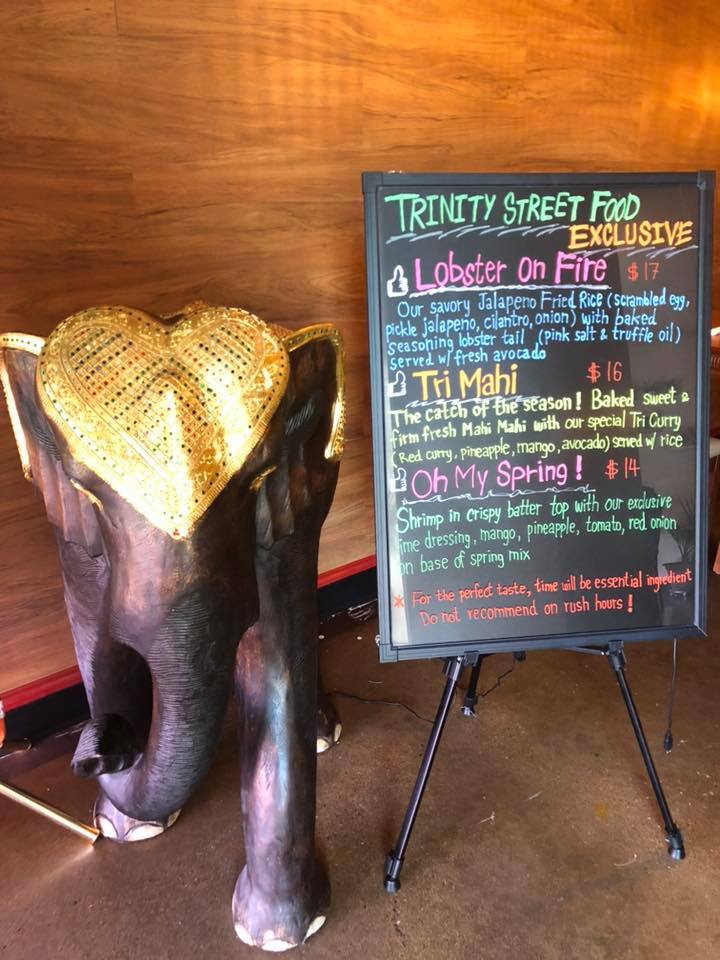 TRINITY STREET FOOD
EXCLUSIVE
Lobster on Fire $17
Our savory Jalapeno Fried Rice (scrambled egg,
pickle jalapeno, cilantro, onion) with baked
seasoning lobster tail (pink salt & truffle oil)
served w/ fresh avocado
Tri Mahi $16
The catch of the season! Baked sweet &
firm fresh Mahi Mahi with our special Tri Curry
(Red curry, pineapple, mango, avocado) served w/ rice
Oh My Spring! $14
Shrimp in crispy batter top with our exclusive
lime dressing, mango, pineapple, tomato, red onion
on base of spring mix
* For the perfect taste, time will be essential ingredient
Do not recommend on rush hours!